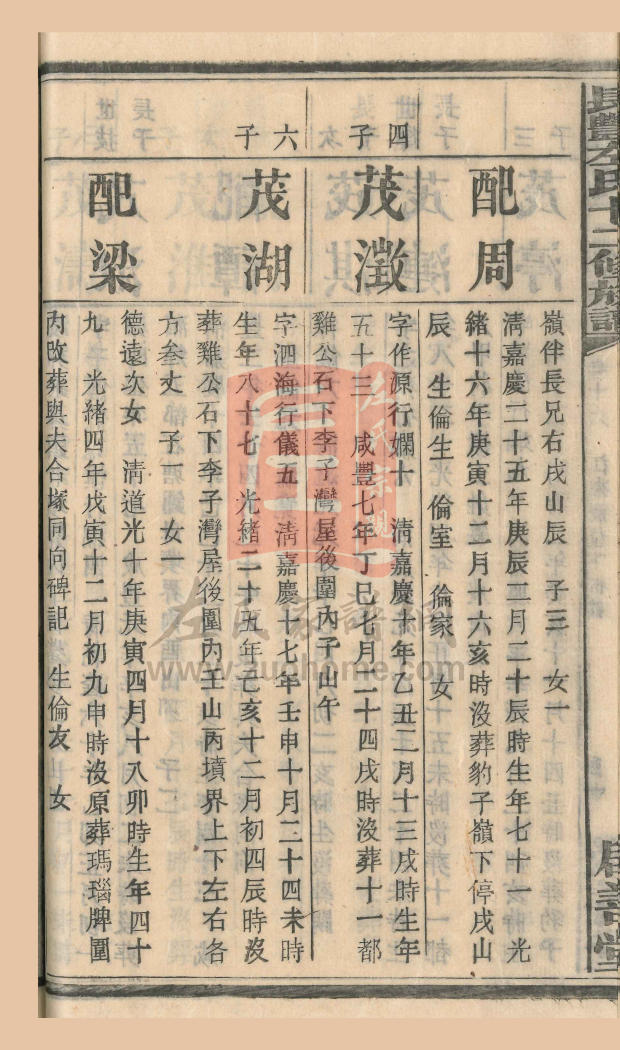 長豐左氏十二修族譜
嶺伴長兄右戌山辰 子三 女一
配周
清嘉慶二十五年庚辰三月二十辰時生年七十一 光
緒十六年庚寅十二月十六亥時沒葬豹子嶺下停戌山
辰 生倫生 倫室 倫家 女
四子
茂澂
字作源行嫻十 清嘉慶十年乙丑二月十三戌時生年
五十三 咸豐七年丁巳七月二十四戌時沒葬十一都
雞公石下李子灣屋後圍內子山午
六子
茂湖
字泗海行儀五 清嘉慶十七年壬申十月二十四未時
生年八十七 光緒二十五年己亥十二月初四辰時沒
葬雞公石下李子灣屋後圍內壬山丙墳界上下左右各
方叁丈 子一 女一
配梁
德遠次女 清道光十年庚寅四月十八卯時生年四十
九 光緒四年戊寅十二月初九申時沒原葬瑪瑙牌圍
內改葬與夫合塚同向碑記 生倫友 女
左氏宗親
左氏家譜網
www.zuohome.com